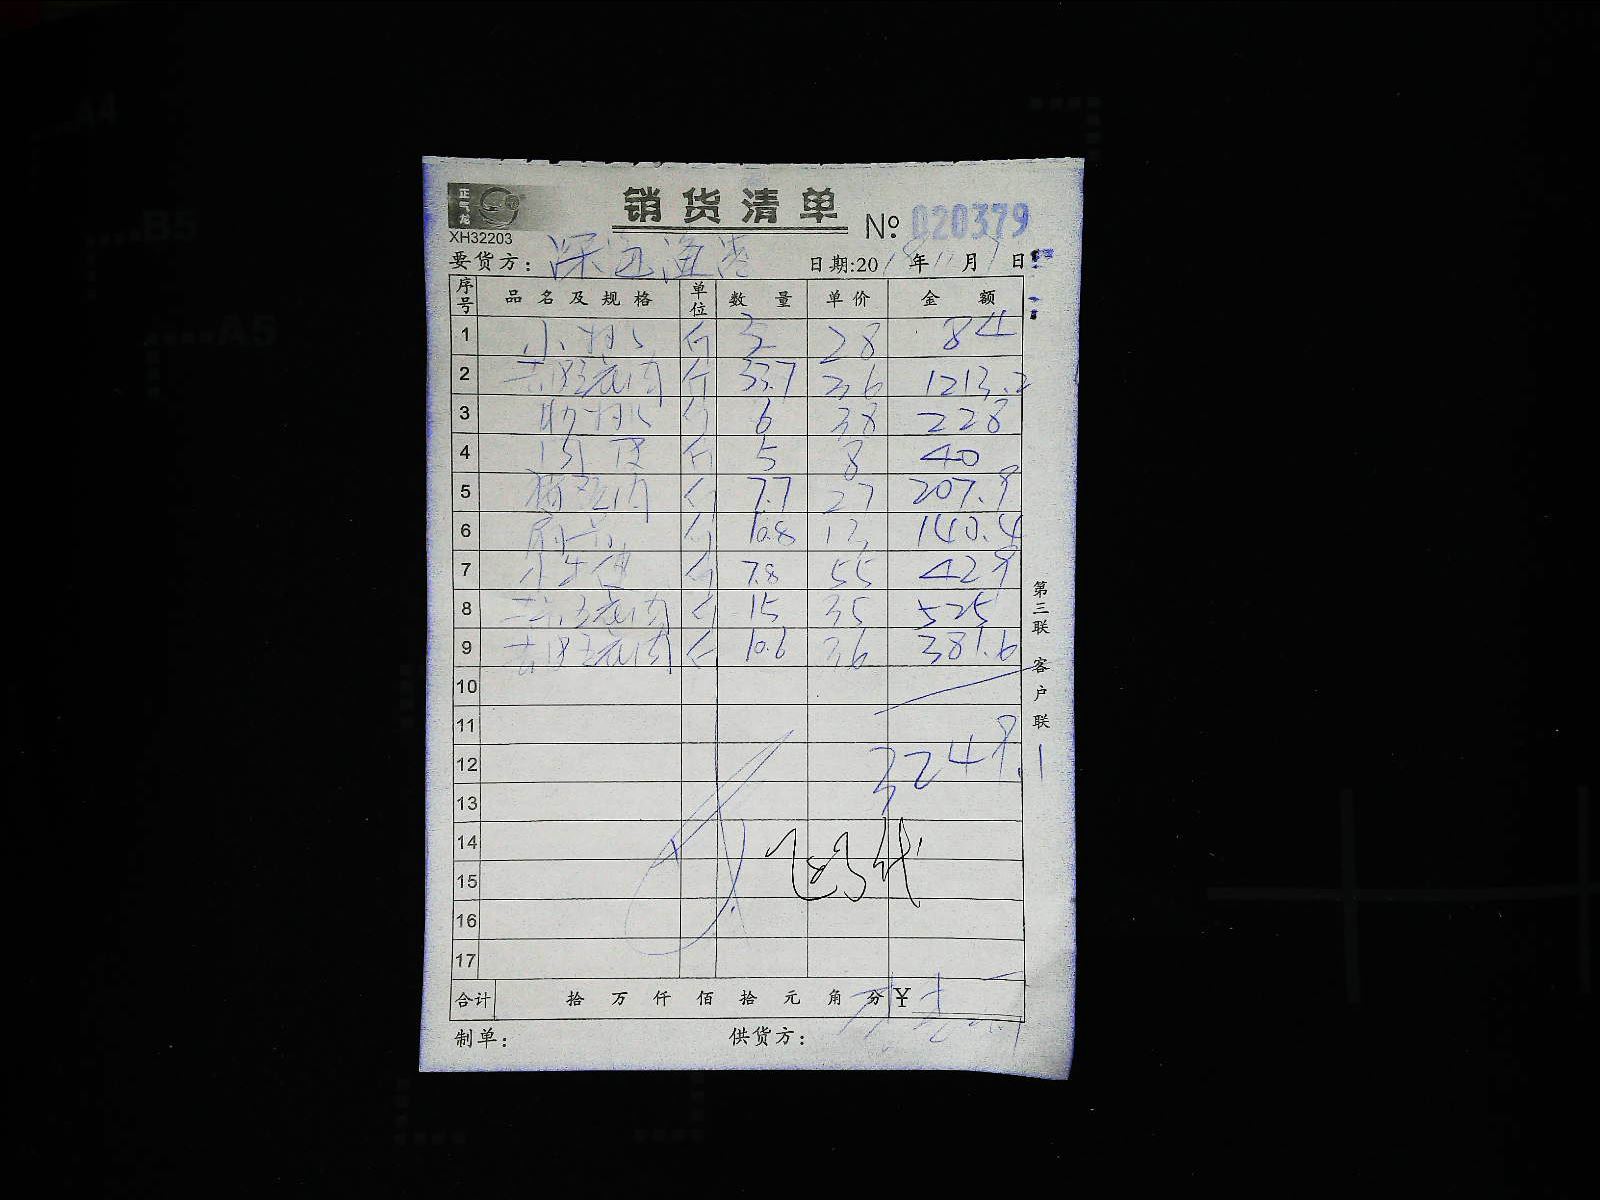 A4
B5
A5
正气龙
销货清单
№ 020379
XH32203
要货方: 深远渔港 日期:2018年11月9日
序号 品名及规格 单位 数量 单价 金额
1 小排 斤 3 28 84
2 去皮五花肉 斤 33.7 36 1213.2
3 肋排 斤 6 38 228
4 肉皮 斤 5 8 40
5 斤 7.7 27 207.9
6 斤 10.8 13 140.4
7 斤 7.8 55 429
8 五花肉 斤 15 35 525
9 去皮五花肉 斤 10.6 36 381.6
10
11
12 3249.1
13
14
15
16
17
合计 拾 万 仟 佰 拾 元 角 分 ¥
制单: 供货方:
第三联 客户联